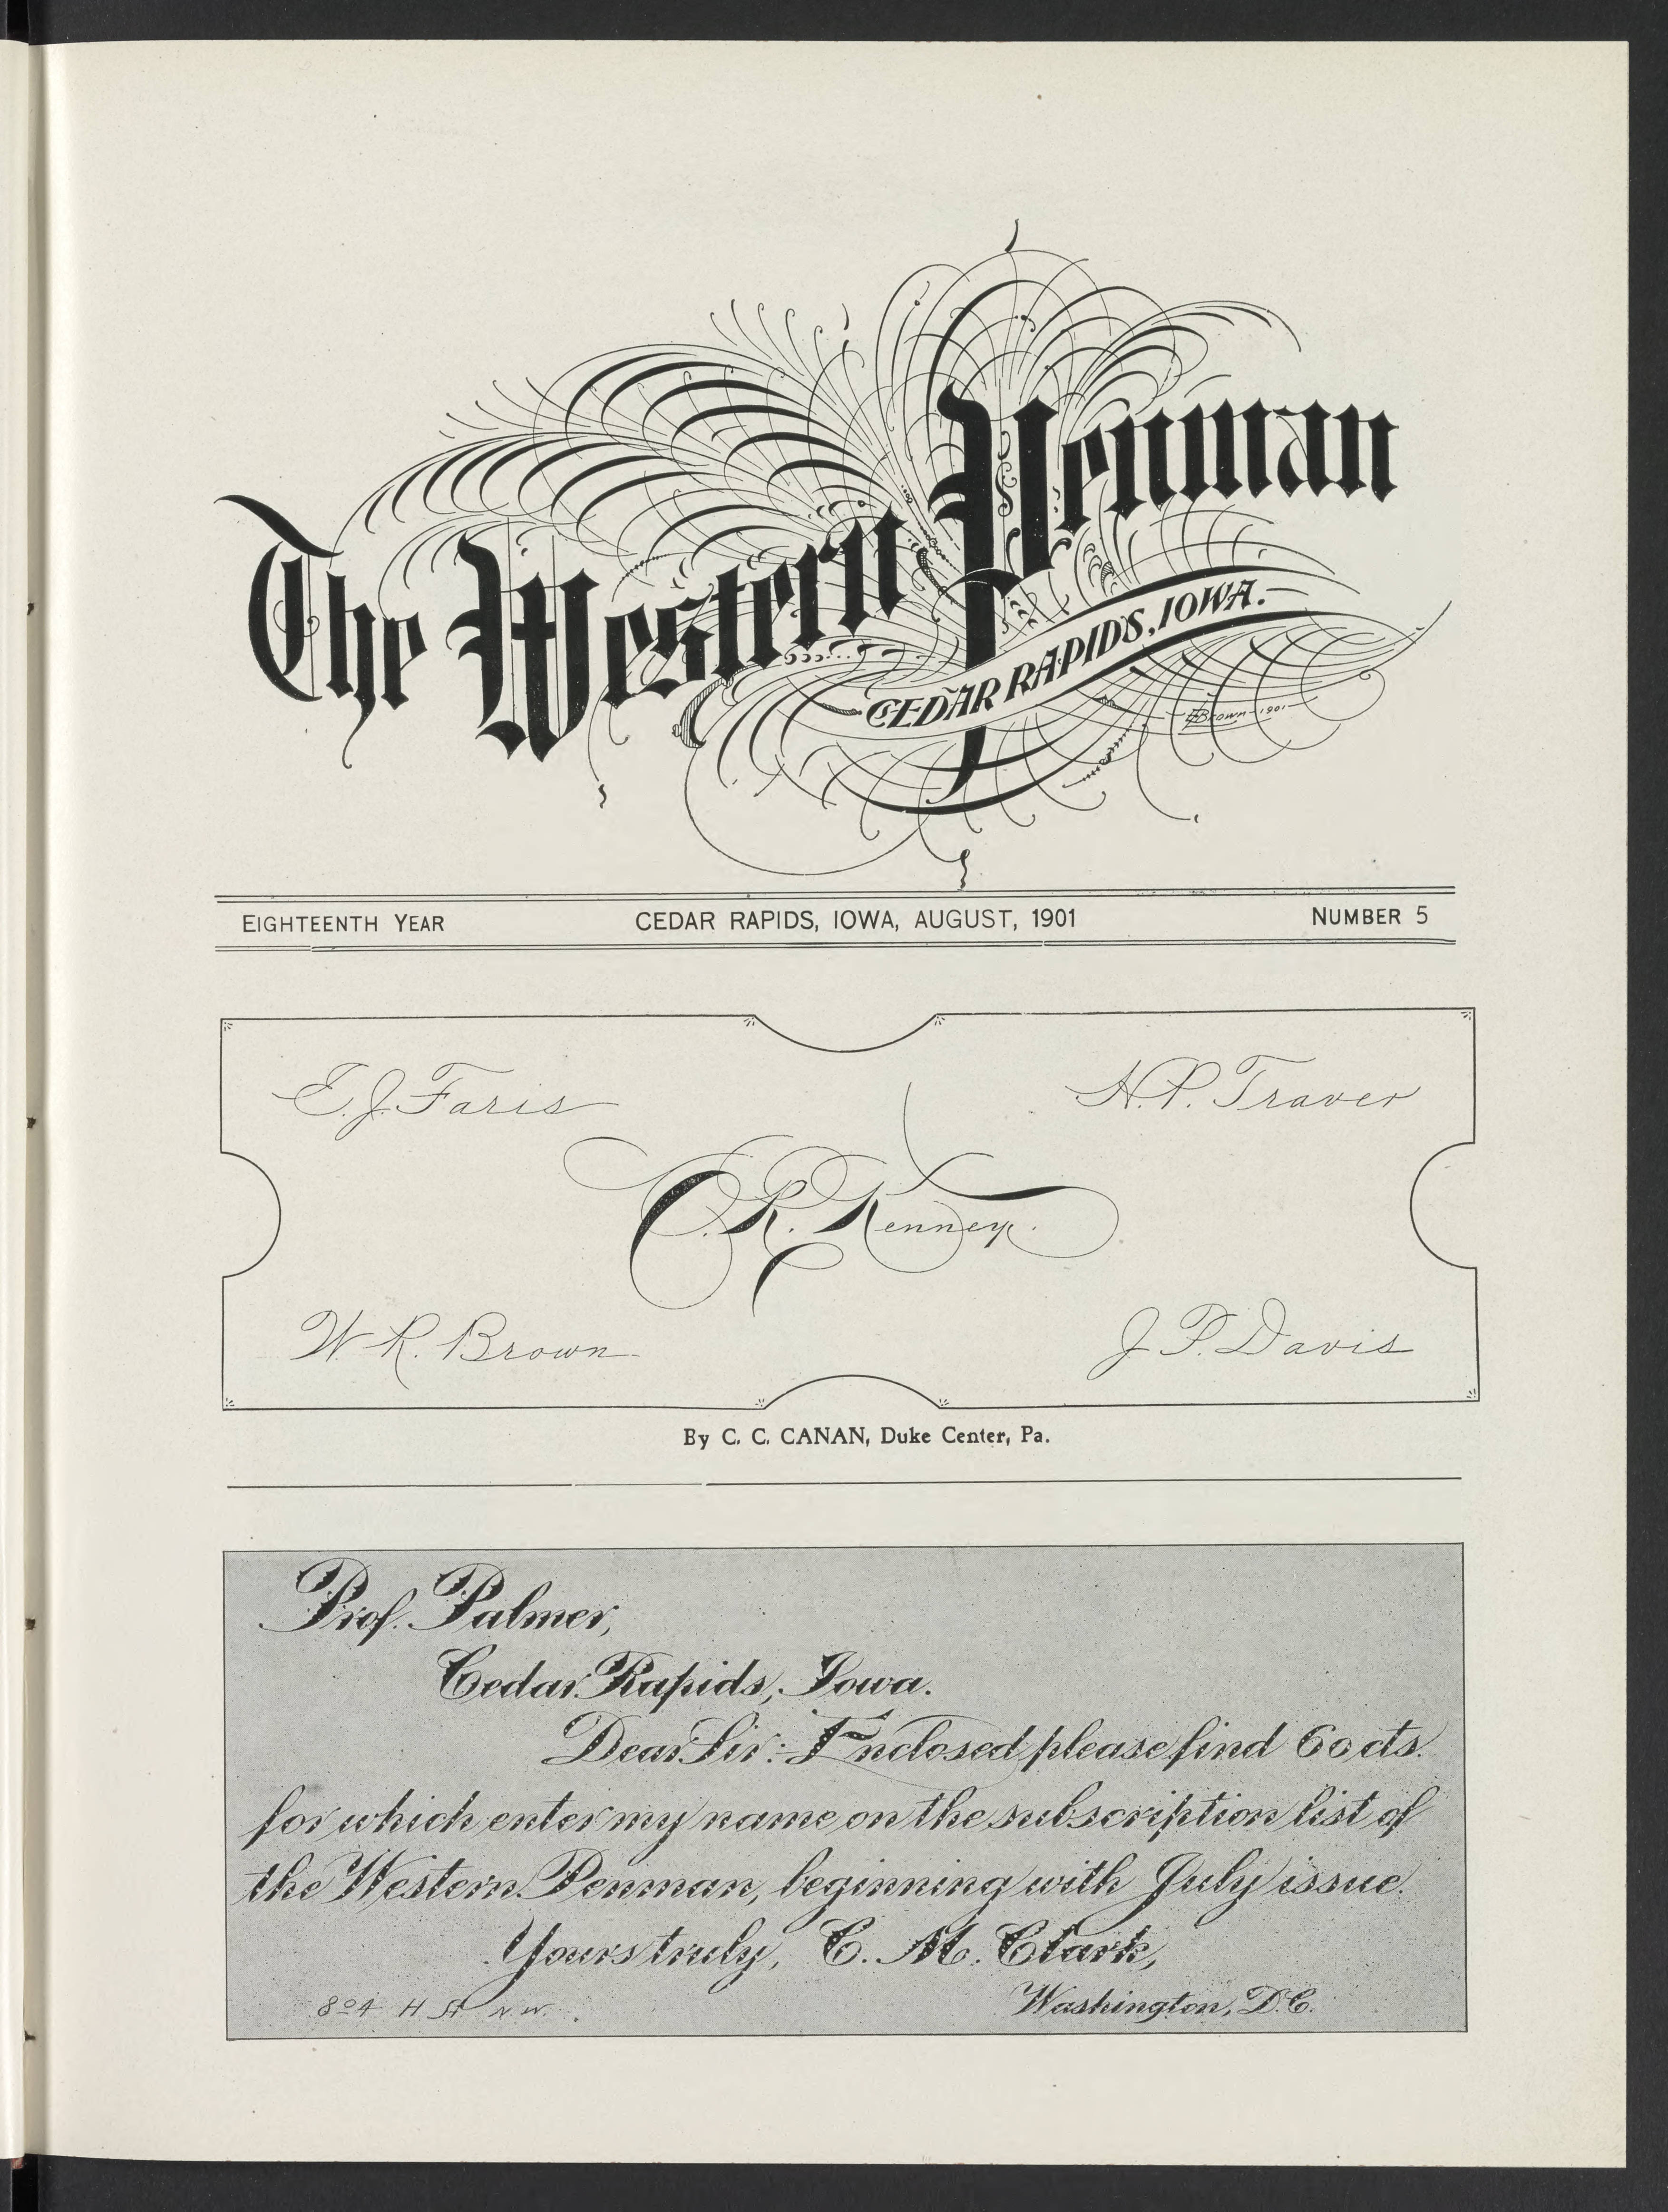 The Western Penman
CEDAR RAPIDS, IOWA.
Brown-1901-
EIGHTEENTH YEAR CEDAR RAPIDS, IOWA, AUGUST, 1901 NUMBER 5
E. J. Faris H. P. Traver
C. R. Kenney.
W. R. Brown J. F. Davis
By C. C. CANAN, Duke Center, Pa.
Prof. Palmer,
Cedar Rapids, Iowa.
Dear Sir:- Enclosed please find 60 cts.
for which enter my name on the subscription list of
the Western Penman, beginning with July issue.
Yours truly, C. M. Clark,
804 H St N. W. Washington, D.C.